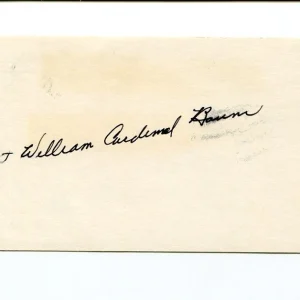 + William Cardinal Baum